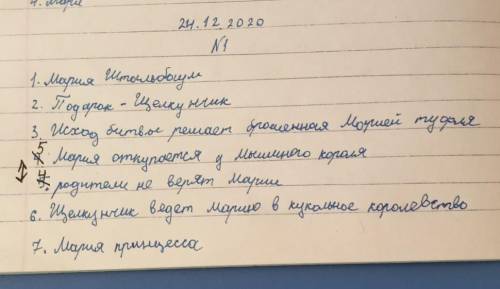 4. Мари
24.12.2020
№1
1. Мария Штальбаум
2. Подарок - Щелкунчик
3. Исход битвы решает брошенная Марией туфля
5 Мария откупается у мышиного короля
4. родители не верят Марии
6. Щелкунчик ведет Марию в кукольное королевство
7. Мария принцесса